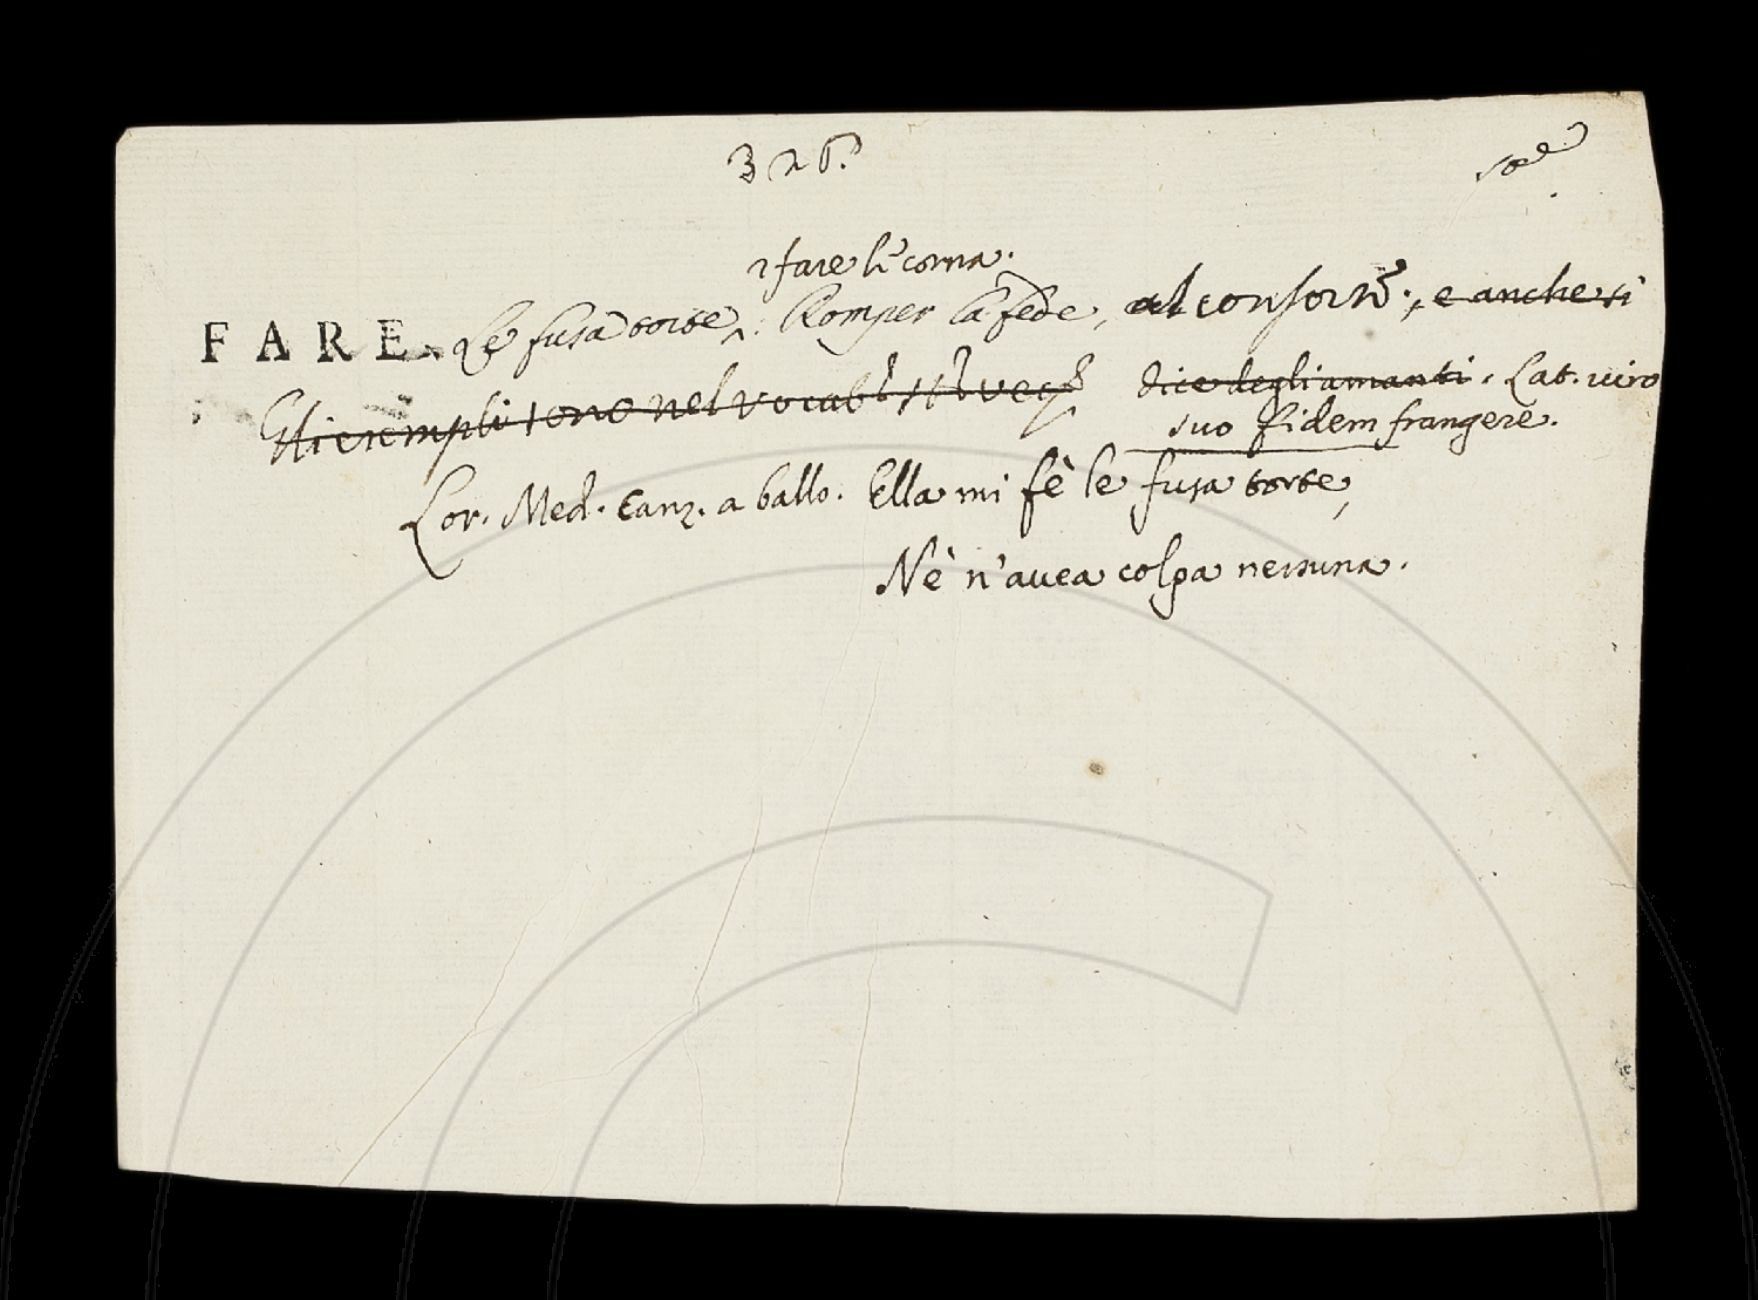 326.
fare le corna.
FARE. Le fusa torte. Romper la fede, al consorte, e anche si
Gli esempli sono nel vocab.
dice degli amanti. Lat. viro
suo fidem frangere.
Lor. Med. Canz. a ballo. Ella mi fè le fusa torte,
Nè n'avea colpa nessuna.